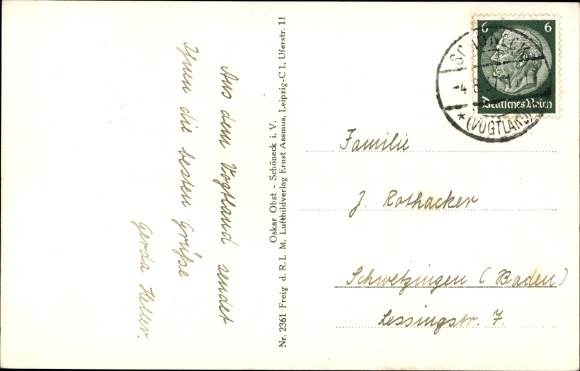 Aus dem Vogtland sendet
Ihnen die besten Grüße
Gerda
Oskar Obst - Schöneck i. V.
Nr. 2361 Freig d. R. L. M. Luftbildverlag Ernst Assmus, Leipzig-C 1, Uferstr. 11
6 6
Deutsches Reich
SCHÖNECK
-4.
* (VOGTLAND)
Familie
J. Rothacker
Schwetzingen (Baden)
Lessingstr. 7.